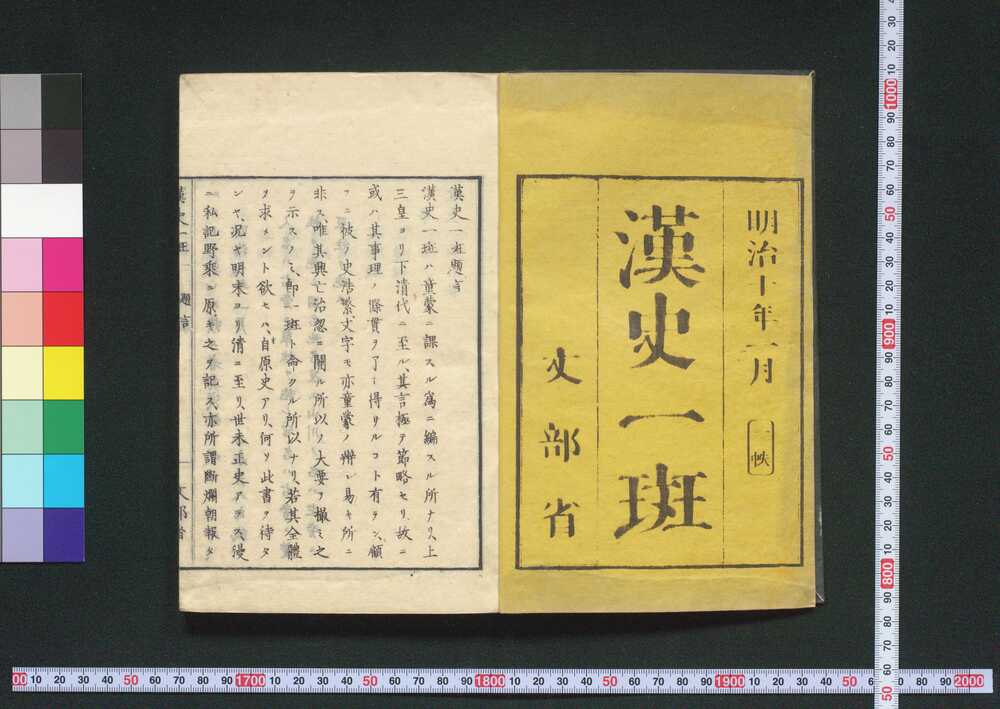 明治十年一月
一帙
漢史一班
文部省
漢史一班題言
漢史一班ハ童蒙ニ課スル爲ニ編スル所ナリ、上
三皇ヨリ下清代ニ至ル、其言極テ節略セリ、故ニ
或ハ其事理ノ條貫ヲ了シ得サルコト有ラン、顧
フニ彼ノ史浩繁丈字モ亦童蒙ノ辨シ易キ所ニ
非ス、唯其興亡治忽ニ關ル所以ノ大要ヲ撮ミ之
ヲ示スノミ、即一班ト命クル所以ナリ、若其全體
ヲ求メント欲セハ、自原史アリ、何ソ此書ヲ待タ
ンヤ、况ヤ明末ヨリ清ニ至リ、世未正史アラス、漫
ニ私記野乘ニ原キ之ヲ記ス、亦所謂斷爛朝報タ
漢史一班
題言
文部省